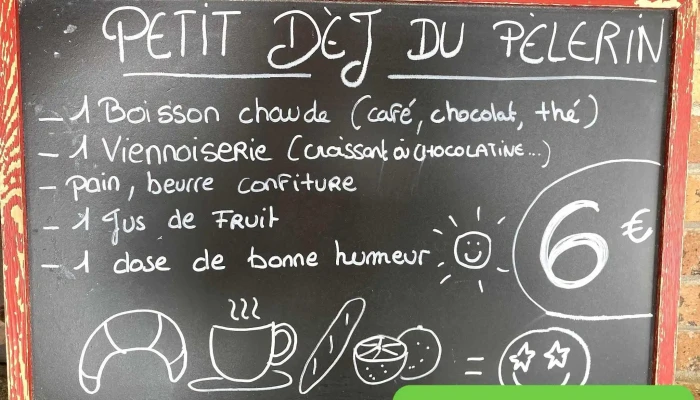 PETIT DÈJ DU PÈLERIN
- 1 Boisson chaude (café, chocolat, thé)
- 1 Viennoiserie (croissant ou CHOCOLATINE...)
- pain, beurre confiture
- 1 Jus de FRuit
- 1 dose de bonne humeur
6 €
=